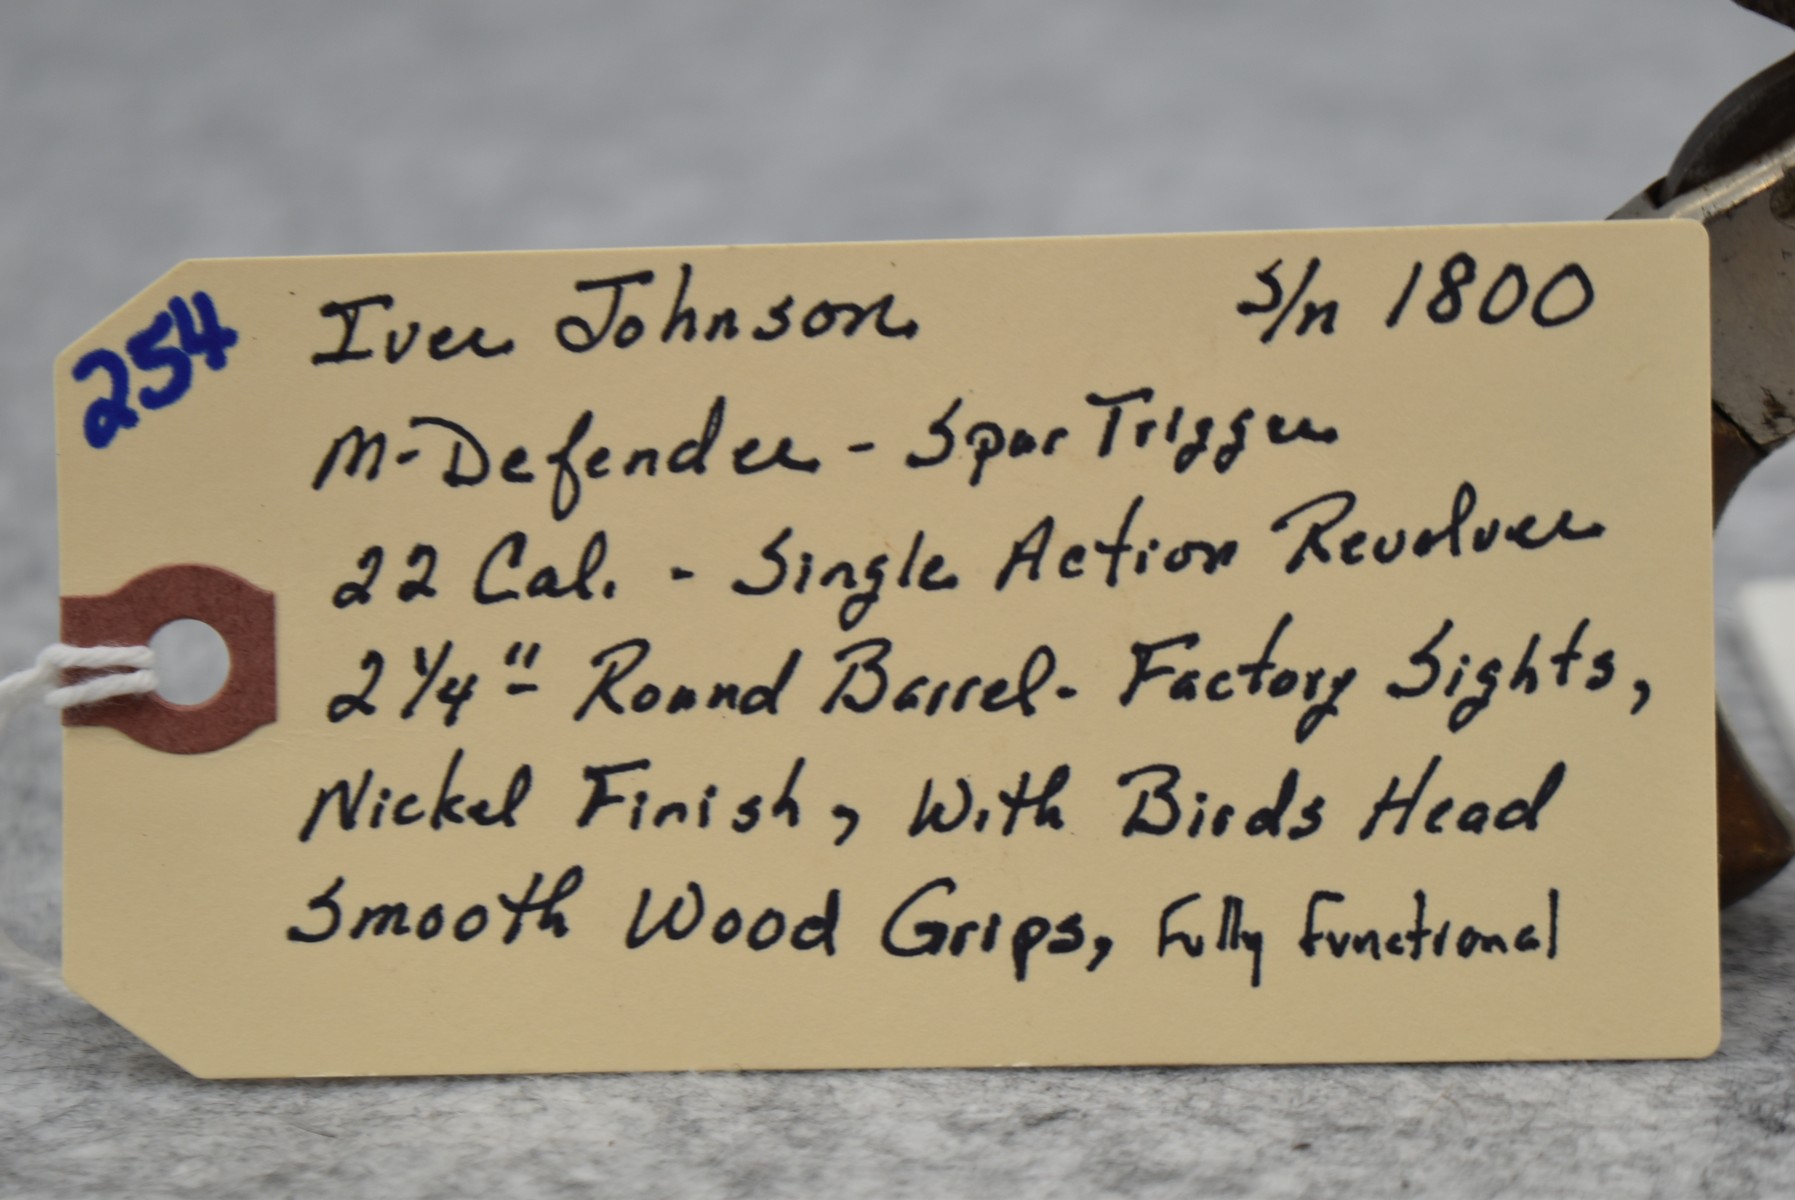 254
Iver Johnson s/n 1800
M-Defender - Spur Trigger
22 Cal. - Single Action Revolver
2 1/4" - Round Barrel - Factory Sights,
Nickel Finish, With Birds Head
Smooth Wood Grips, Fully Functional